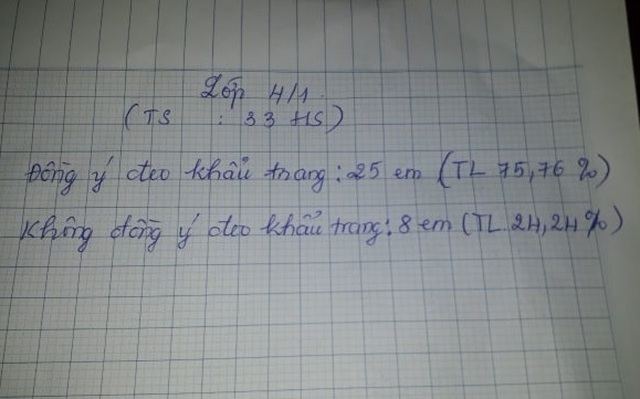 Lớp 4/1.
(TS : 33 HS)
Đồng ý đeo khẩu trang : 25 em (TL 75,76 %)
Không đồng ý đeo khẩu trang : 8 em (TL 24,24 %)